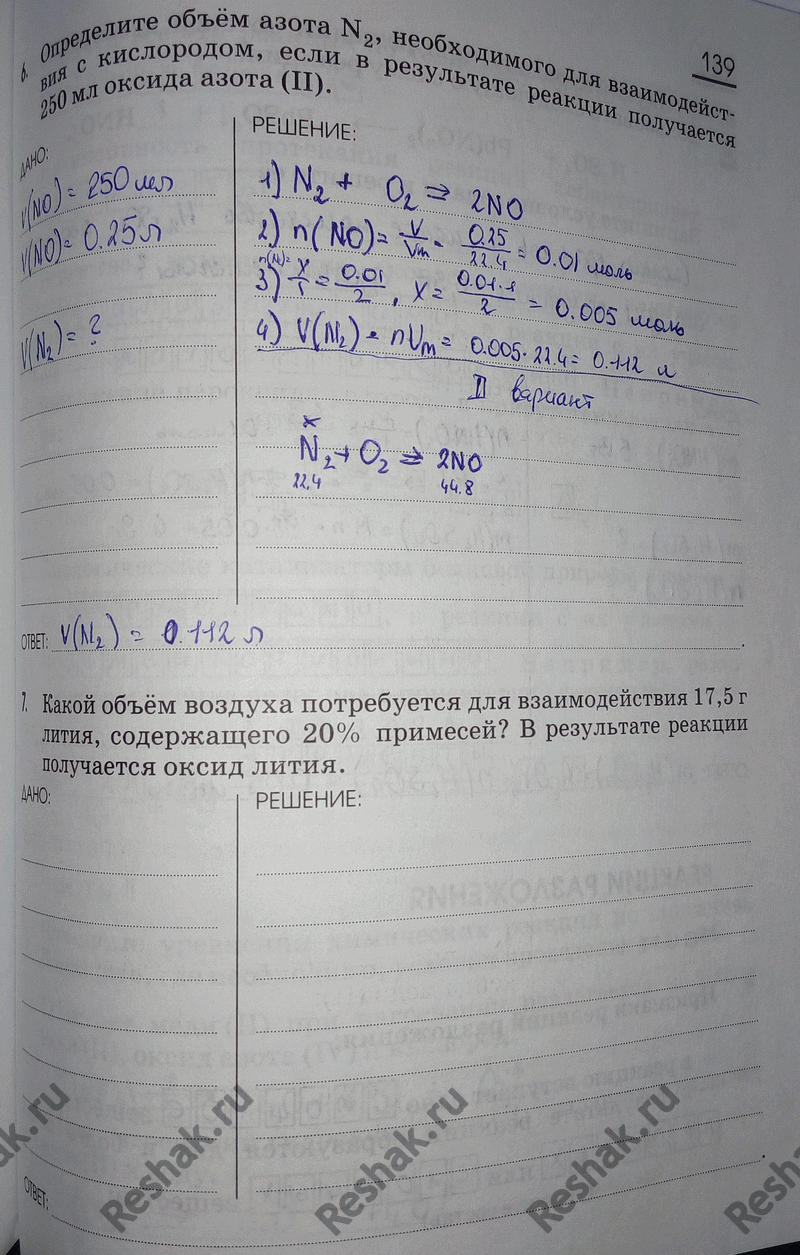 139
6. Определите объём азота N₂, необходимого для взаимодейст-
вия с кислородом, если в результате реакции получается
250 мл оксида азота (II).
ДАНО:
V(NO) = 250 мл
V(NO) = 0.25 л
V(N₂) = ?
РЕШЕНИЕ:
1) N₂ + O₂ ⇒ 2NO
2) n(NO) = V/Vm = 0.25/22.4 = 0.01 моль
n(N₂) =
3) x/1 = 0.01/2, x = 0.01·1/2 = 0.005 моль
4) V(N₂) = nVm = 0.005·22.4 = 0.112 л
II вариант
x
N₂ + O₂ ⇒ 2NO
22,4 44.8
ОТВЕТ: V(N₂) = 0.112 л
7. Какой объём воздуха потребуется для взаимодействия 17,5 г
лития, содержащего 20% примесей? В результате реакции
получается оксид лития.
ДАНО:
РЕШЕНИЕ:
ОТВЕТ:
Reshak.ru
Reshak.ru
Reshak.ru